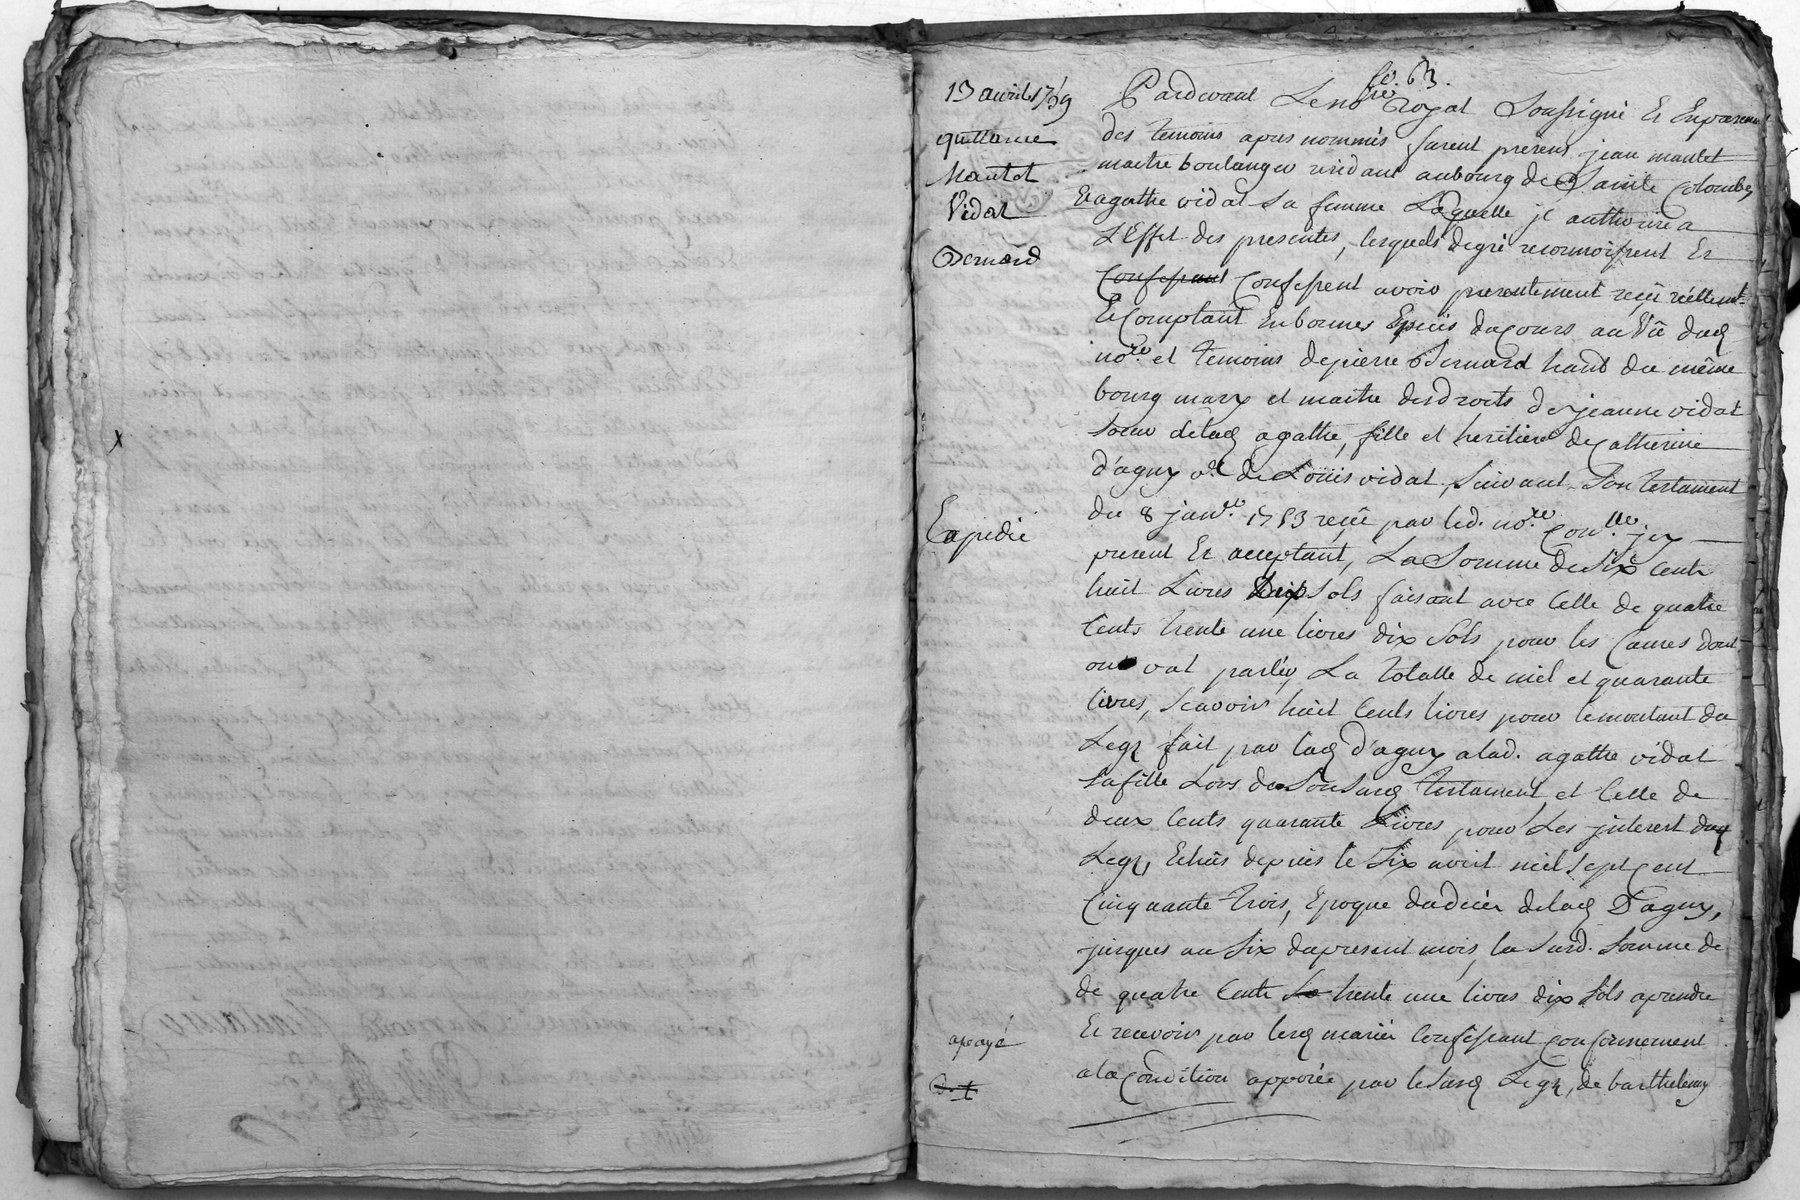 fo. 63.
13 avril 1759
quittance
Mantet
Vidal
Bernard
Expedié
apayé
Pardevant Le no.re Royal Soussigné Et Enpresence
des temoins apres nommés furent presens jean mantet
maitre boulanger residant aubourg de Sainte Colombe,
Et agathe vidal Sa femme Laquelle jl authorise a
L'Effet des presentes, lesquels degré reconnoissent Et
Confessant Confessent avoir presentement reçû réellem.t
Et Comptant En bonnes Espèces du Cours au Vû dud
no.re et temoins de pierre Bernard hand du même
bourg mary et maitre des droits de jeanne vidal
soeur delad agathe, fille et heritiere de Catherine
d'aguy v.e de Loüis vidal, Suivant Son testament
du 8 janv.er 1753 reçû par led. no.re con.ller jcy
present Et acceptant, La Somme de Six Cents
huit Livres Dix Sols faisant avec Celle de quatre
Cents trente une livres dix Sols pour les Causes dont
on vat parler, La totalle de mil et quarante
livres, Scavoir huit Cents livres pour le montant du
Legz fait par lad d'aguy a lad. agathe vidal
Sa fille Lors de Son Susd testament, et Celle de
deux Cents quarante Livres pour Les jnterest dud
Legz, Echûs depuis le Six avril mil sept Cent
Cinquante trois, Epoque du decès delad D'aguy,
jusques au Six du present mois, la Susd. Somme de
de quatre Cents trente une livres dix Sols aprendre
Et recevoir par lesd mariés Confessant Conformement
a la Condition apposée par le Susd Legz, de barthelemy